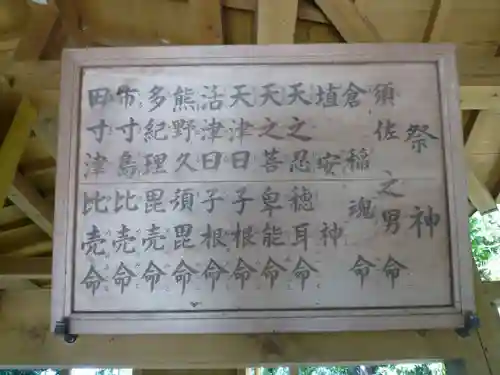 祭神
須佐之男命
倉稲魂命
埴安神
天之忍穂耳命
天之菩卑能命
天津日子根命
活津日子根命
熊野久須毘命
多紀理毘売命
市寸島比売命
田寸津比売命